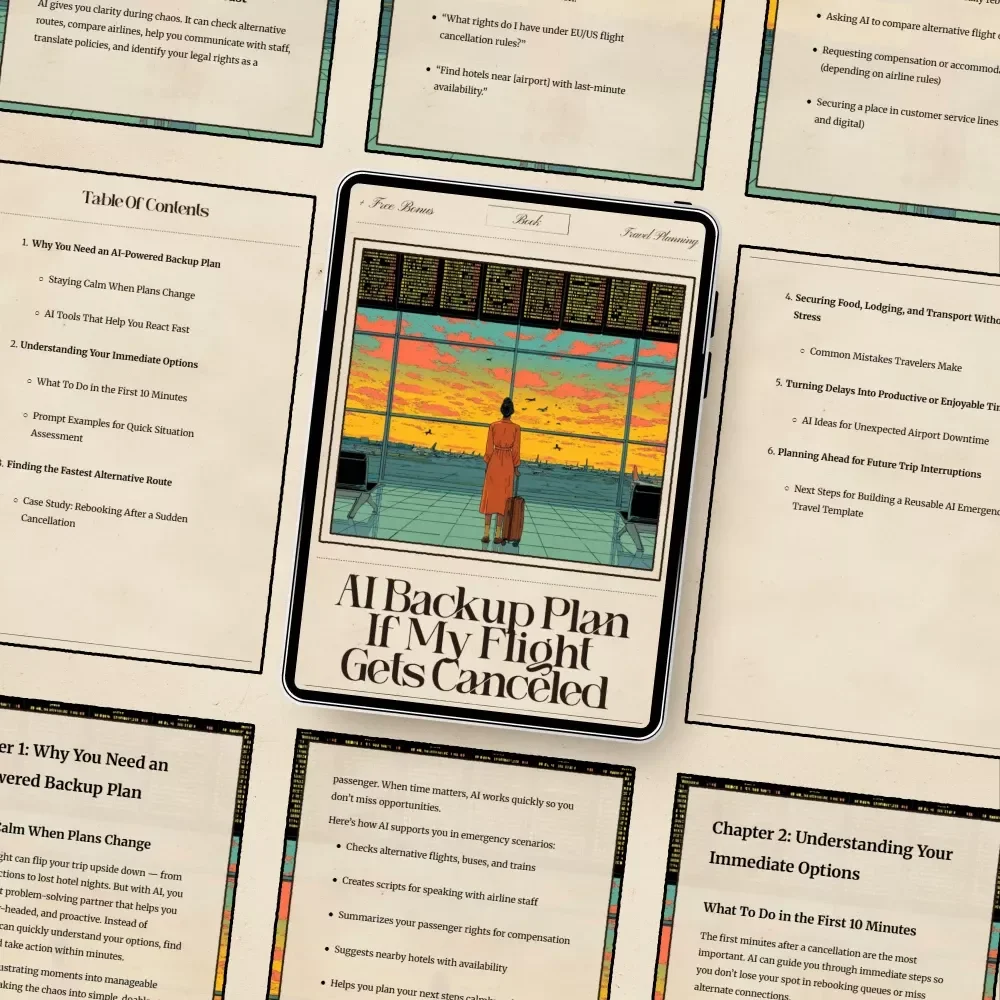 AI gives you clarity during chaos. It can check alternative
routes, compare airlines, help you communicate with staff,
translate policies, and identify your legal rights as a
• "What rights do I have under EU/US flight
cancellation rules?"
• "Find hotels near [airport] with last-minute
availability."
• Asking AI to compare alternative flight
• Requesting compensation or
(depending on airline rules)
• Securing a place in customer service lines
and digital)
Table Of Contents
1. Why You Need an AI-Powered Backup Plan
○ Staying Calm When Plans Change
○ AI Tools That Help You React Fast
2. Understanding Your Immediate Options
○ What To Do in the First 10 Minutes
○ Prompt Examples for Quick Situation
Assessment
Finding the Fastest Alternative Route
○ Case Study: Rebooking After a Sudden
Cancellation
+ Free Bonus
Book
Travel Planning
AI Backup Plan
If My Flight
Gets Canceled
4. Securing Food, Lodging, and Transport
Stress
○ Common Mistakes Travelers Make
5. Turning Delays Into Productive or Enjoyable
○ AI Ideas for Unexpected Airport Downtime
6. Planning Ahead for Future Trip Interruptions
○ Next Steps for Building a Reusable AI
Travel Template
1: Why You Need an
Backup Plan
When Plans Change
can flip your trip upside down — from
to lost hotel nights. But with AI, you
problem-solving partner that helps you
and proactive. Instead of
can quickly understand your options, find
take action within minutes.
moments into manageable
the chaos into simple,
passenger. When time matters, AI works quickly so you
don't miss opportunities.
Here's how AI supports you in emergency scenarios:
• Checks alternative flights, buses, and trains
• Creates scripts for speaking with airline staff
• Summarizes your passenger rights for compensation
• Suggests nearby hotels with availability
• Helps you plan your next steps
Chapter 2: Understanding Your
Immediate Options
What To Do in the First 10 Minutes
The first minutes after a cancellation are the most
important. AI can guide you through immediate steps so
you don't lose your spot in rebooking queues or miss
alternate connections.